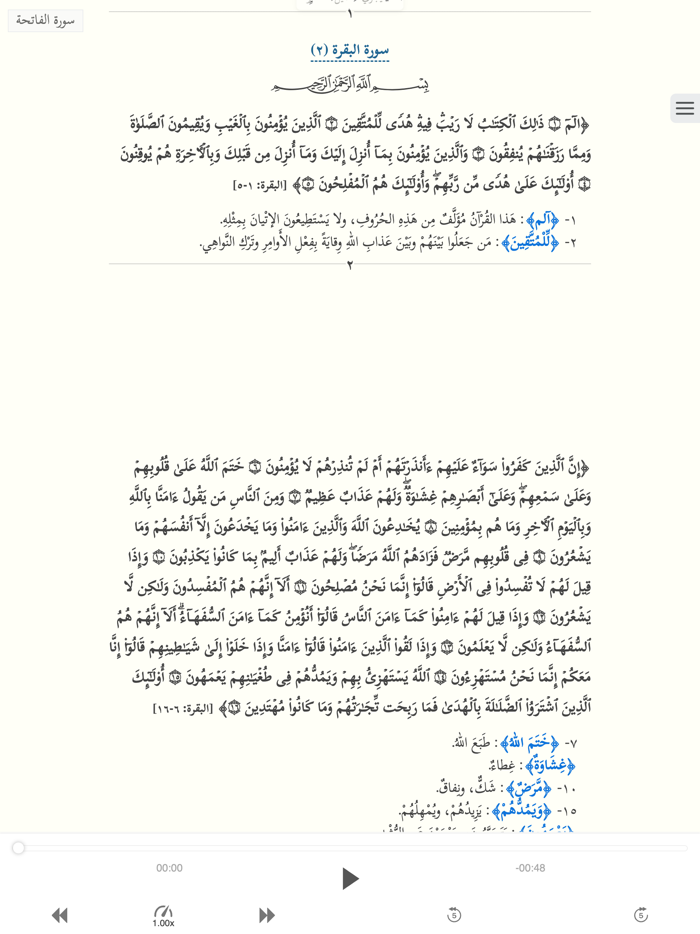 سورة الفاتحة
١
سورة البقرة (٢)
بِسْمِ اللَّهِ الرَّحْمَٰنِ الرَّحِيمِ
﴿الٓمٓ ۝١ ذَٰلِكَ ٱلۡكِتَٰبُ لَا رَيۡبَۛ فِيهِۛ هُدٗى لِّلۡمُتَّقِينَ ۝٢ ٱلَّذِينَ يُؤۡمِنُونَ بِٱلۡغَيۡبِ وَيُقِيمُونَ ٱلصَّلَوٰةَ
وَمِمَّا رَزَقۡنَٰهُمۡ يُنفِقُونَ ۝٣ وَٱلَّذِينَ يُؤۡمِنُونَ بِمَآ أُنزِلَ إِلَيۡكَ وَمَآ أُنزِلَ مِن قَبۡلِكَ وَبِٱلۡأٓخِرَةِ هُمۡ يُوقِنُونَ
۝٤ أُوْلَٰٓئِكَ عَلَىٰ هُدٗى مِّن رَّبِّهِمۡۖ وَأُوْلَٰٓئِكَ هُمُ ٱلۡمُفۡلِحُونَ ۝٥﴾ [البقرة: ١-٥]
١- ﴿الٓم﴾: هَذا القُرْآنُ مُؤَلَّفٌ مِن هَذِهِ الحُرُوفِ، ولا يَسْتَطِيعُونَ الإتْيانَ بِمِثْلِهِ.
٢- ﴿لِّلْمُتَّقِينَ﴾: مَن جَعَلُوا بَيْنَهُمْ وبَيْنَ عَذابِ اللهِ وِقايَةً بِفِعْلِ الأَوامِرِ وتَرْكِ النَّواهِي.
٢
﴿إِنَّ ٱلَّذِينَ كَفَرُواْ سَوَآءٌ عَلَيۡهِمۡ ءَأَنذَرۡتَهُمۡ أَمۡ لَمۡ تُنذِرۡهُمۡ لَا يُؤۡمِنُونَ ۝٦ خَتَمَ ٱللَّهُ عَلَىٰ قُلُوبِهِمۡ
وَعَلَىٰ سَمۡعِهِمۡۖ وَعَلَىٰٓ أَبۡصَٰرِهِمۡ غِشَٰوَةٞۖ وَلَهُمۡ عَذَابٌ عَظِيمٞ ۝٧ وَمِنَ ٱلنَّاسِ مَن يَقُولُ ءَامَنَّا بِٱللَّهِ
وَبِٱلۡيَوۡمِ ٱلۡأٓخِرِ وَمَا هُم بِمُؤۡمِنِينَ ۝٨ يُخَٰدِعُونَ ٱللَّهَ وَٱلَّذِينَ ءَامَنُواْ وَمَا يَخۡدَعُونَ إِلَّآ أَنفُسَهُمۡ وَمَا
يَشۡعُرُونَ ۝٩ فِي قُلُوبِهِم مَّرَضٞ فَزَادَهُمُ ٱللَّهُ مَرَضٗاۖ وَلَهُمۡ عَذَابٌ أَلِيمُۢ بِمَا كَانُواْ يَكۡذِبُونَ ۝١٠ وَإِذَا
قِيلَ لَهُمۡ لَا تُفۡسِدُواْ فِي ٱلۡأَرۡضِ قَالُوٓاْ إِنَّمَا نَحۡنُ مُصۡلِحُونَ ۝١١ أَلَآ إِنَّهُمۡ هُمُ ٱلۡمُفۡسِدُونَ وَلَٰكِن لَّا
يَشۡعُرُونَ ۝١٢ وَإِذَا قِيلَ لَهُمۡ ءَامِنُواْ كَمَآ ءَامَنَ ٱلنَّاسُ قَالُوٓاْ أَنُؤۡمِنُ كَمَآ ءَامَنَ ٱلسُّفَهَآءُۗ أَلَآ إِنَّهُمۡ هُمُ
ٱلسُّفَهَآءُ وَلَٰكِن لَّا يَعۡلَمُونَ ۝١٣ وَإِذَا لَقُواْ ٱلَّذِينَ ءَامَنُواْ قَالُوٓاْ ءَامَنَّا وَإِذَا خَلَوۡاْ إِلَىٰ شَيَٰطِينِهِمۡ قَالُوٓاْ إِنَّا
مَعَكُمۡ إِنَّمَا نَحۡنُ مُسۡتَهۡزِءُونَ ۝١٤ ٱللَّهُ يَسۡتَهۡزِئُ بِهِمۡ وَيَمُدُّهُمۡ فِي طُغۡيَٰنِهِمۡ يَعۡمَهُونَ ۝١٥ أُوْلَٰٓئِكَ
ٱلَّذِينَ ٱشۡتَرَوُاْ ٱلضَّلَٰلَةَ بِٱلۡهُدَىٰ فَمَا رَبِحَت تِّجَٰرَتُهُمۡ وَمَا كَانُواْ مُهۡتَدِينَ ۝١٦﴾ [البقرة: ٦-١٦]
٧- ﴿خَتَمَ اللهُ﴾: طَبَعَ اللهُ.
﴿غِشَاوَةٌ﴾: غِطاءٌ.
١٠- ﴿مَّرَضٌ﴾: شَكٌّ، ونِفاقٌ.
١٥- ﴿وَيَمُدُّهُمْ﴾: يَزِيدُهُمْ، ويُمْهِلُهُمْ.
00:00
-00:48
1.00x
5
5